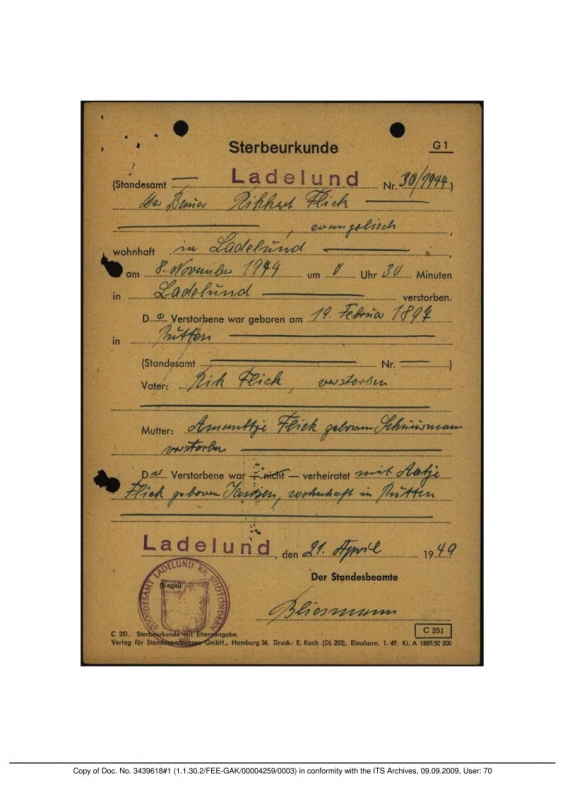 Sterbeurkunde
G 1
(Standesamt — Ladelund Nr. 30/1944)
Der Bauer Rikkert Flick
evangelisch
wohnhaft in Ladelund
am 8. November 1944 um 0 Uhr 30 Minuten
in Ladelund verstorben.
Der Verstorbene war geboren am 19. Februar 1897
in Putten
(Standesamt — Nr. — )
Vater: Rik Flick, verstorben
Mutter: Flick geborene Schuurmann
verstorben
Der Verstorbene war — nicht — verheiratet mit Aatje
Flick geborene Jansen, wohnhaft in Putten
Ladelund, den 21. April 1949
Der Standesbeamte
(Siegel)
STANDESAMT LADELUND KR. SÜDTONDERN
Bliesmann
C 251
C 251. Sterbeurkunde mit Elternangabe.
Verlag für Standesamtswesen GmbH., Hamburg 36. Druck: E. Koch (DL 203), Elmshorn. 1. 49. Kl. A 1889/50 000
Copy of Doc. No. 3439618#1 (1.1.30.2/FEE-GAK/00004259/0003) in conformity with the ITS Archives, 09.09.2009, User: 70